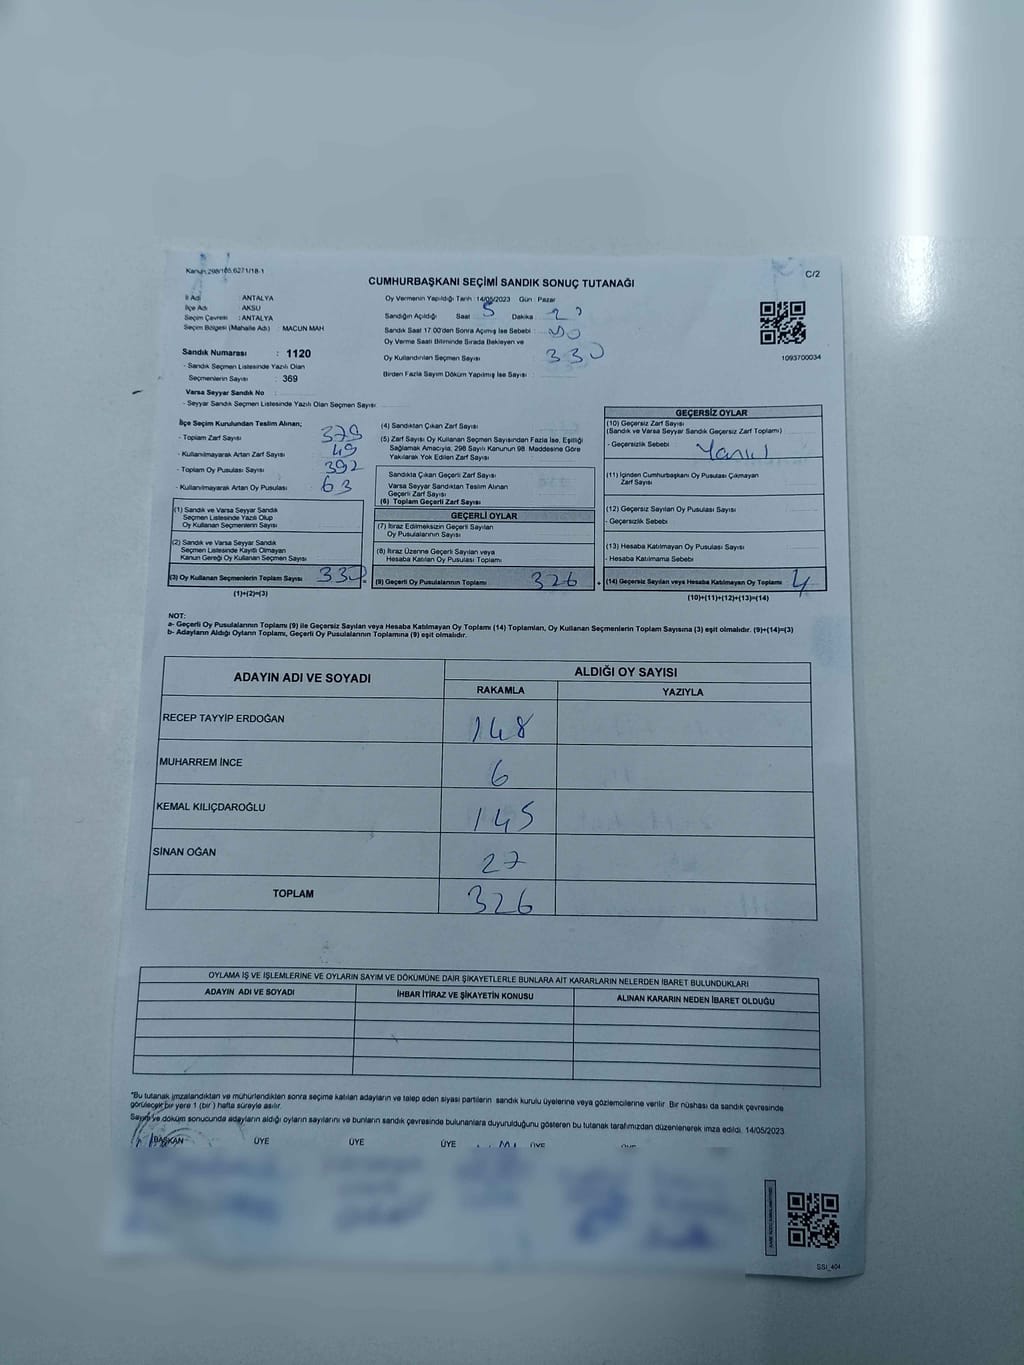 Kanun 298/105,6271/18-1
C/2
CUMHURBAŞKANI SEÇİMİ SANDIK SONUÇ TUTANAĞI
İl Adı ANTALYA
İlçe Adı AKSU
Seçim Çevresi : ANTALYA
Seçim Bölgesi (Mahalle Adı) MACUN MAH
Sandık Numarası : 1120
- Sandık Seçmen Listesinde Yazılı Olan
Seçmenlerin Sayısı : 369
Varsa Seyyar Sandık No
- Seyyar Sandık Seçmen Listesinde Yazılı Olan Seçmen Sayısı
Oy Vermenin Yapıldığı Tarih : 14/05/2023 Gün : Pazar
Sandığın Açıldığı Saat 5 Dakika
Sandık Saat 17:00'den Sonra Açılmış İse Sebebi :
Oy Verme Saati Bitiminde Sırada Bekleyen ve
Oy Kullandırılan Seçmen Sayısı 330
Birden Fazla Sayım Döküm Yapılmış İse Sayısı :
1093700034
İlçe Seçim Kurulundan Teslim Alınan;
- Toplam Zarf Sayısı 379
- Kullanılmayarak Artan Zarf Sayısı 49
- Toplam Oy Pusulası Sayısı 392
- Kullanılmayarak Artan Oy Pusulası 63
(1) Sandık ve Varsa Seyyar Sandık
Seçmen Listesinde Yazılı Olup
Oy Kullanan Seçmenlerin Sayısı
(2) Sandık ve Varsa Seyyar Sandık
Seçmen Listesinde Kayıtlı Olmayan
Kanun Gereği Oy Kullanan Seçmen Sayısı
(3) Oy Kullanan Seçmenlerin Toplam Sayısı 330
(1)+(2)=(3)
(4) Sandıktan Çıkan Zarf Sayısı
(5) Zarf Sayısı Oy Kullanan Seçmen Sayısından Fazla İse, Eşitliği
Sağlamak Amacıyla, 298 Sayılı Kanunun 98. Maddesine Göre
Yakılarak Yok Edilen Zarf Sayısı
Sandıkta Çıkan Geçerli Zarf Sayısı
Varsa Seyyar Sandıktan Teslim Alınan
Geçerli Zarf Sayısı
(6) Toplam Geçerli Zarf Sayısı
GEÇERLİ OYLAR
(7) İtiraz Edilmeksizin Geçerli Sayılan
Oy Pusulalarının Sayısı
(8) İtiraz Üzerine Geçerli Sayılan veya
Hesaba Katılan Oy Pusulası Toplamı
(9) Geçerli Oy Pusulalarının Toplamı 326
GEÇERSİZ OYLAR
(10) Geçersiz Zarf Sayısı
(Sandık ve Varsa Seyyar Sandık Geçersiz Zarf Toplamı)
- Geçersizlik Sebebi
(11) İçinden Cumhurbaşkanı Oy Pusulası Çıkmayan
Zarf Sayısı
(12) Geçersiz Sayılan Oy Pusulası Sayısı
- Geçersizlik Sebebi
(13) Hesaba Katılmayan Oy Pusulası Sayısı
- Hesaba Katılmama Sebebi
+ (14) Geçersiz Sayılan veya Hesaba Katılmayan Oy Toplamı 4
(10)+(11)+(12)+(13)=(14)
NOT:
a- Geçerli Oy Pusulalarının Toplamı (9) ile Geçersiz Sayılan veya Hesaba Katılmayan Oy Toplamı (14) Toplamları, Oy Kullanan Seçmenlerin Toplam Sayısına (3) eşit olmalıdır. (9)+(14)=(3)
b- Adayların Aldığı Oyların Toplamı, Geçerli Oy Pusulalarının Toplamına (9) eşit olmalıdır.
ADAYIN ADI VE SOYADI ALDIĞI OY SAYISI
RAKAMLA YAZIYLA
RECEP TAYYİP ERDOĞAN 148
MUHARREM İNCE 6
KEMAL KILIÇDAROĞLU 145
SİNAN OĞAN 27
TOPLAM 326
OYLAMA İŞ VE İŞLEMLERİNE VE OYLARIN SAYIM VE DÖKÜMÜNE DAİR ŞİKAYETLERLE BUNLARA AİT KARARLARIN NELERDEN İBARET BULUNDUKLARI
ADAYIN ADI VE SOYADI İHBAR İTİRAZ VE ŞİKAYETİN KONUSU ALINAN KARARIN NEDEN İBARET OLDUĞU
*Bu tutanak imzalandıktan ve mühürlendikten sonra seçime katılan adayların ve talep eden siyasi partilerin sandık kurulu üyelerine veya gözlemcilerine verilir. Bir nüshası da sandık çevresinde
görülecek bir yere 1 (bir) hafta süreyle asılır.
Sayım ve döküm sonucunda adayların aldığı oyların sayılarını ve bunların sandık çevresinde bulunanlara duyurulduğunu gösteren bu tutanak tarafımızdan düzenlenerek imza edildi. 14/05/2023
BAŞKAN ÜYE ÜYE ÜYE ÜYE
SSI_404